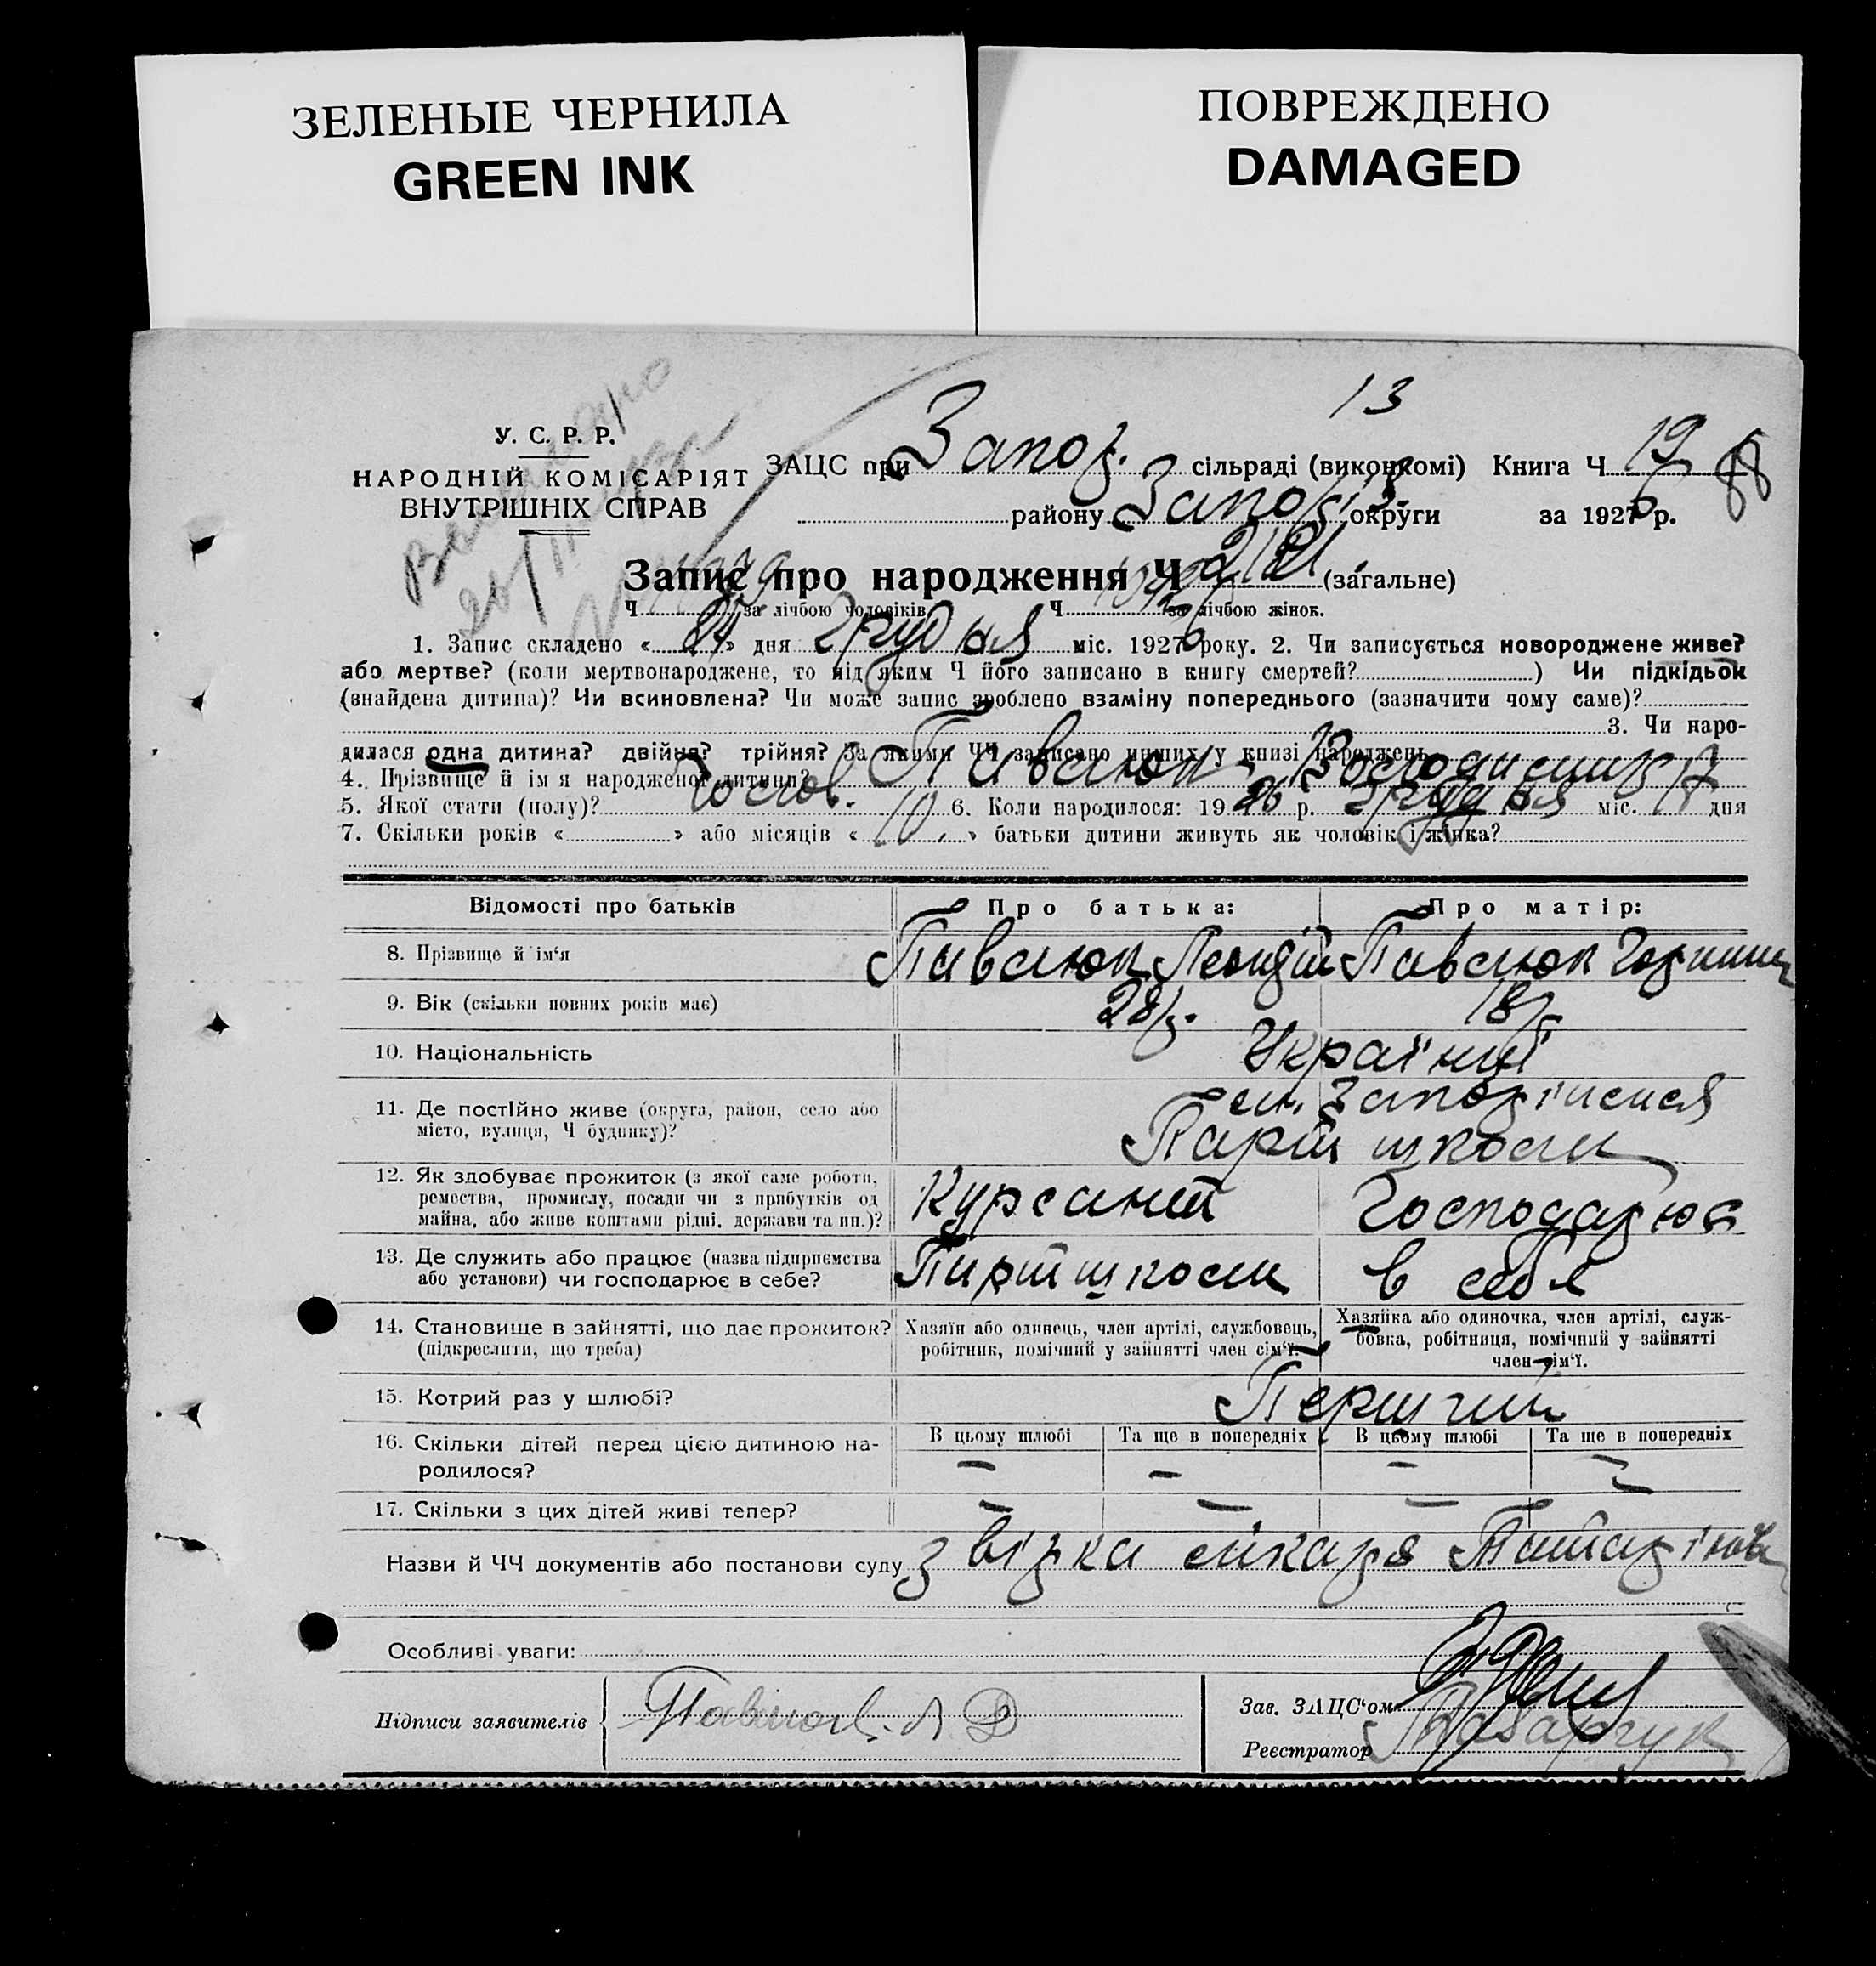 ЗЕЛЕНЫЕ ЧЕРНИЛА
GREEN INK
ПОВРЕЖДЕНО
DAMAGED
13
У. С. Р. Р.
НАРОДНІЙ КОМІСАРІЯТ
ВНУТРІШНІХ СПРАВ
ЗАЦС при Запор. сільраді (виконкомі) Книга Ч 19 88
району Запоріз. округи за 1926 р.
Запис про народження Ч (загальне)
Ч за лічбою чоловіків Ч за лічбою жінок.
1. Запис складено « 24 » дня Грудня міс. 1926 року. 2. Чи записується новороджене живе?
або мертве? (коли мертвонароджене, то під яким Ч його записано в книгу смертей? ) Чи підкідьок
(знайдена дитина)? Чи всиновлена? Чи може запис зроблено взаміну попереднього (зазначити чому саме)?
3. Чи наро-
дилася одна дитина? двійня? трійня? За якими ЧЧ записано инших у книзі народжень
4. Прізвище й ім'я народженої дитини? Павлюк
5. Якої стати (полу)? Чолов. 6. Коли народилося: 1926 р. Грудня міс. 17 дня
7. Скільки років « » або місяців « 10. » батьки дитини живуть як чоловік і жінка?
Відомості про батьків Про батька: Про матір:
8. Прізвище й ім'я Павлюк Леонід Павлюк
9. Вік (скільки повних років має) 28 р. 18 р.
10. Національність Українці
11. Де постійно живе (округа, район, село або
місто, вулиця, Ч будинку)?
м. Запоріжжя
Парт школи
12. Як здобуває прожиток (з якої саме роботи,
ремества, промислу, посади чи з прибутків од
майна, або живе коштами рідні, держави та ин.)?
Курсант Господарює
13. Де служить або працює (назва підприємства
або установи) чи господарює в себе?
Парт школи в себя
14. Становище в зайнятті, що дає прожиток?
(підкреслити, що треба)
Хазяїн або одинець, член артілі, службовець,
робітник, помічний у зайнятті член сім'ї.
Хазяйка або одиночка, член артілі, служ-
бовка, робітниця, помічний у зайнятті
член сім'ї.
15. Котрий раз у шлюбі? Перший
16. Скільки дітей перед цією дитиною на-
родилося?
В цьому шлюбі Та ще в попередніх В цьому шлюбі Та ще в попередніх
– – – –
17. Скільки з цих дітей живі тепер? – – – –
Назви й ЧЧ документів або постанови суду лікаря
Особливі уваги:
Підписи заявителів
Зав. ЗАЦС'ом
Реєстратор